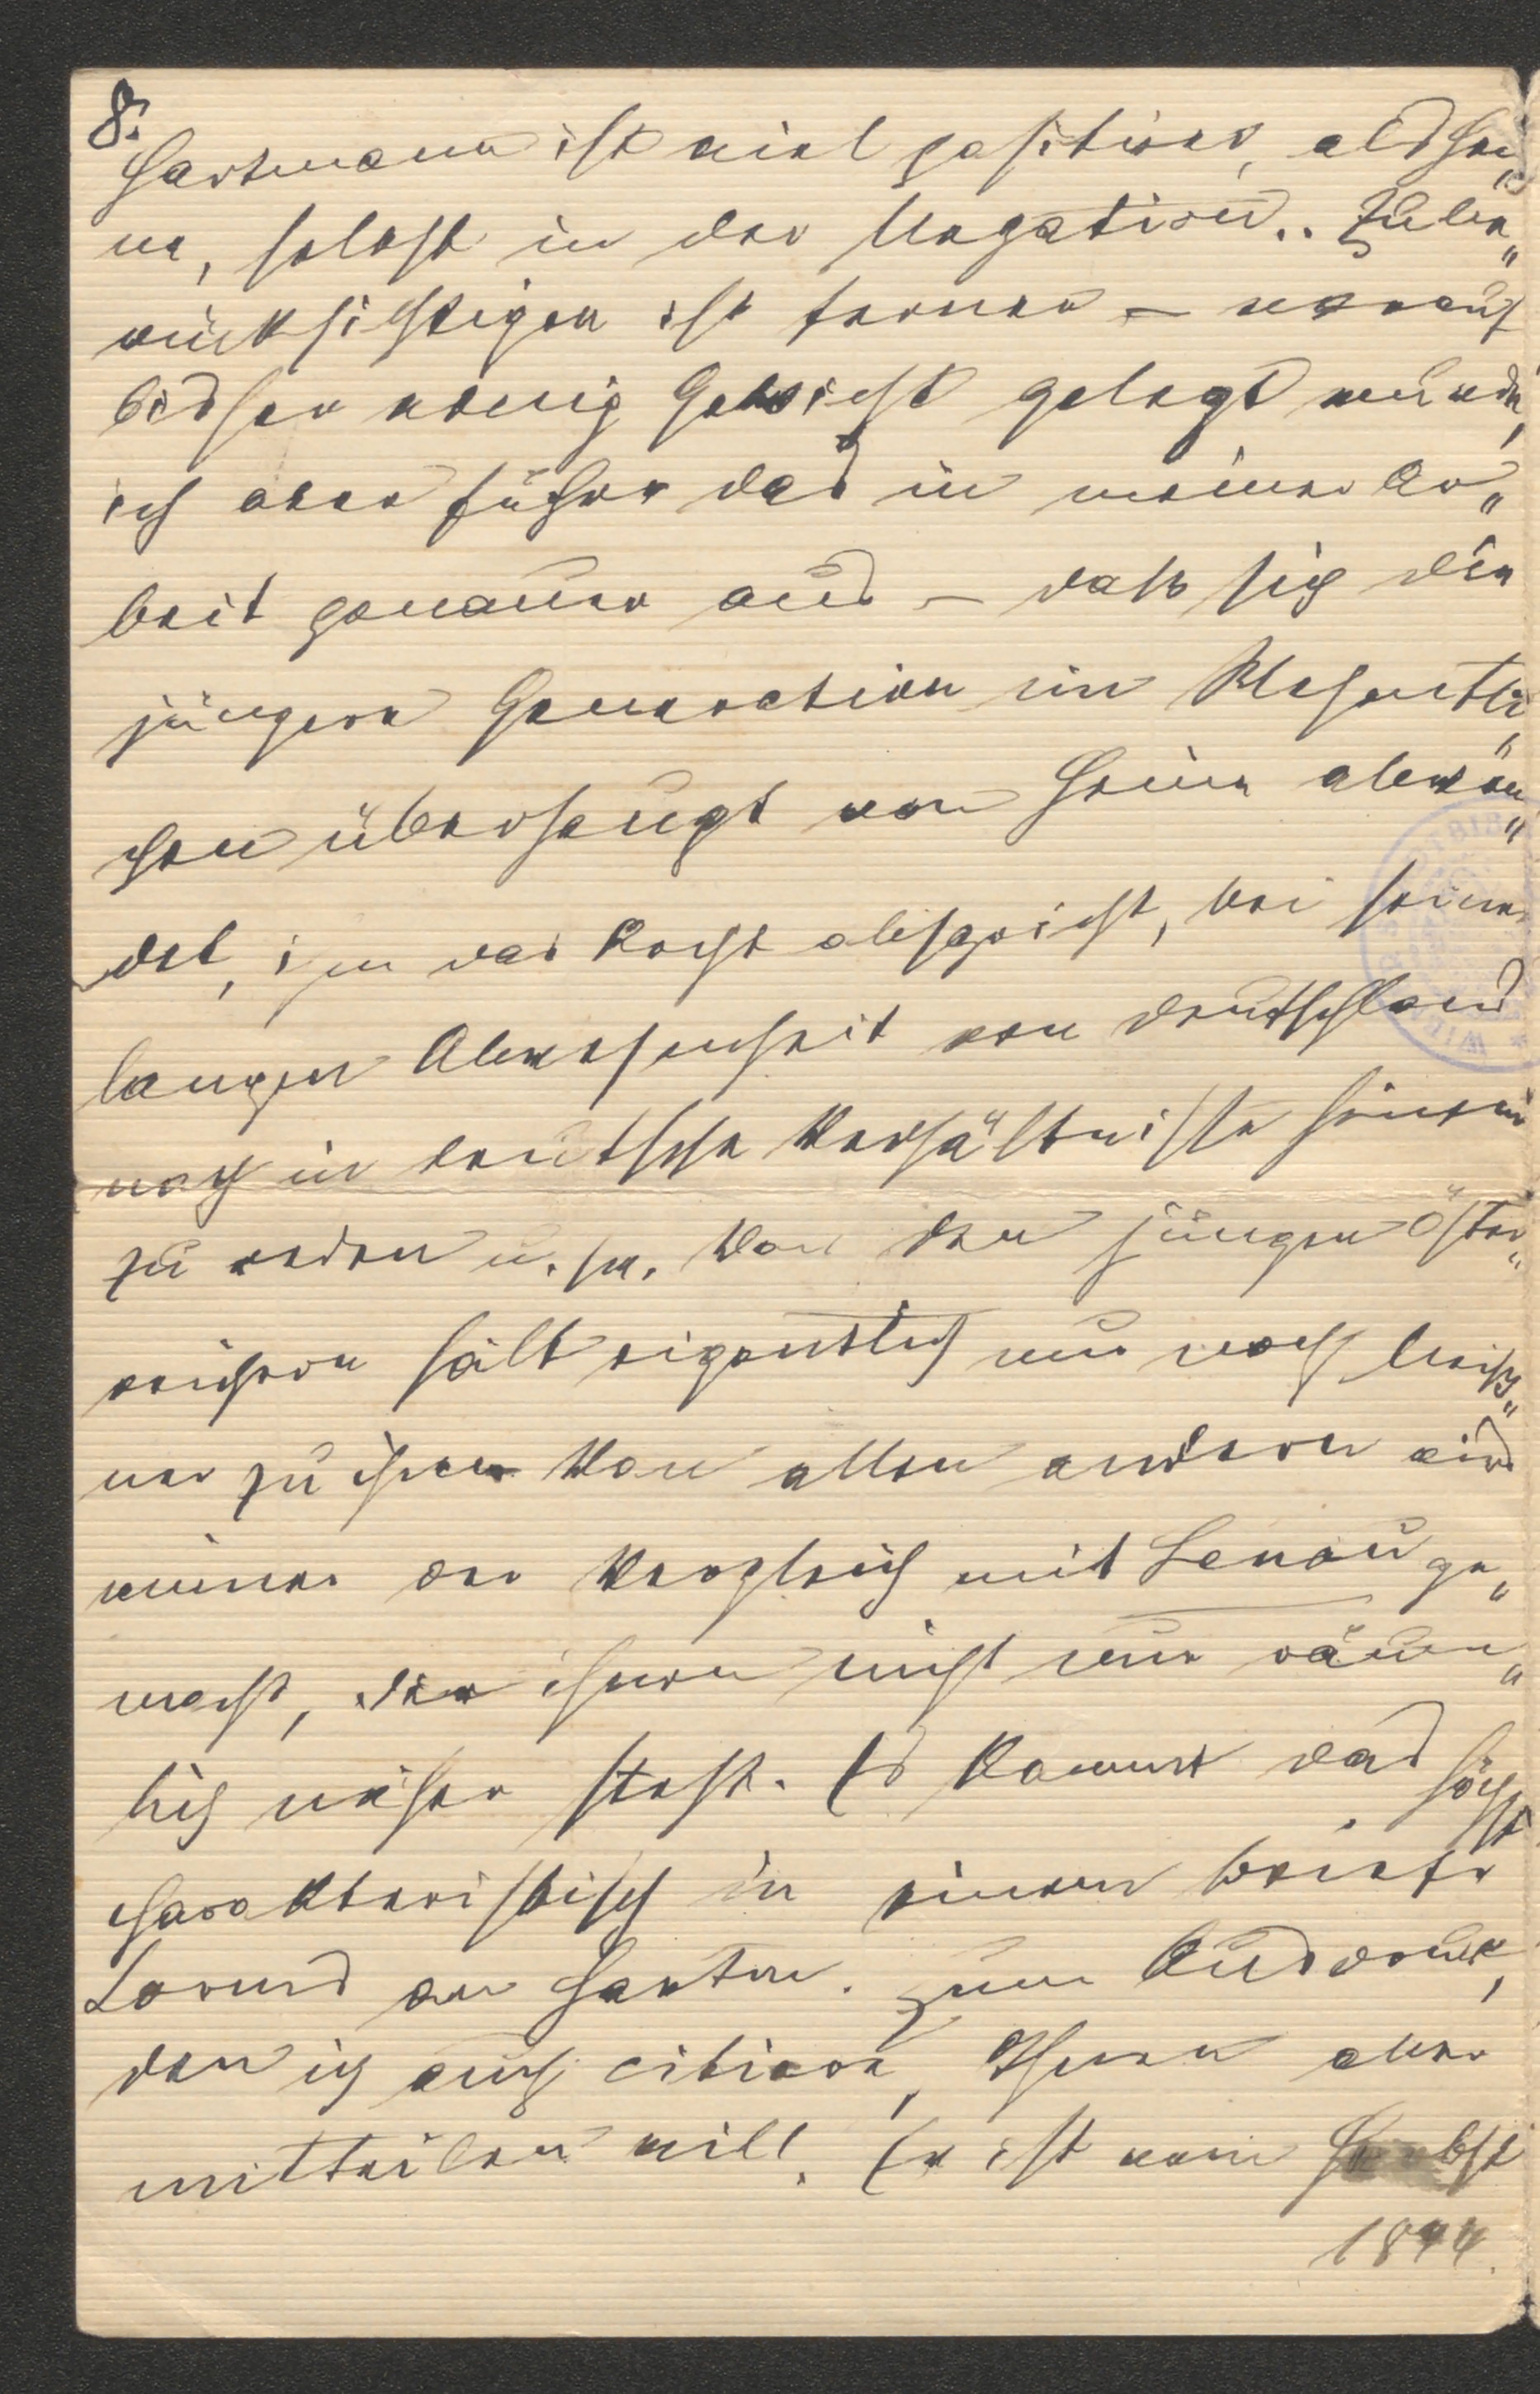 8.
Hartmann ist viel positiver, als Hei„
ne, selbst in der Negation.. Zu be„
rücksichtigen ist ferner – worauf
bisher wenig Gewicht gelegt wurde,
ich aber führe das in meiner Ar„
beit genauer aus – dass sich die
jüngere Generation im Wesentli„
chen überhaupt von Heine abwen„
det, ihm das Recht abspricht, bei seiner
langen Abwesenheit von Deutschland
noch in deutsche Verhältnisse hinein
zu reden u. sw. Von den jungen Öster„
reichern hält eigentlich nur noch Meiß„
ner zu ihm. Von allen andern wird
immer der Vergleich mit Lenau ge„
macht, der ihnen nicht nur räum„
lich näher steht. Es kommt das höchst
charakteristisch in einem Briefe
Lorms an Hartm. zum Ausdruck,
den ich auch citiere, Ihnen aber
mitteilen will. Er ist vom Herbst
1844.